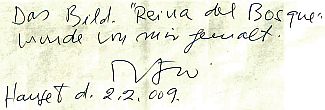 Das Bild. "Reina del Bosque"
wurde von mir gemalt.
Hauset d. 2.2.009.